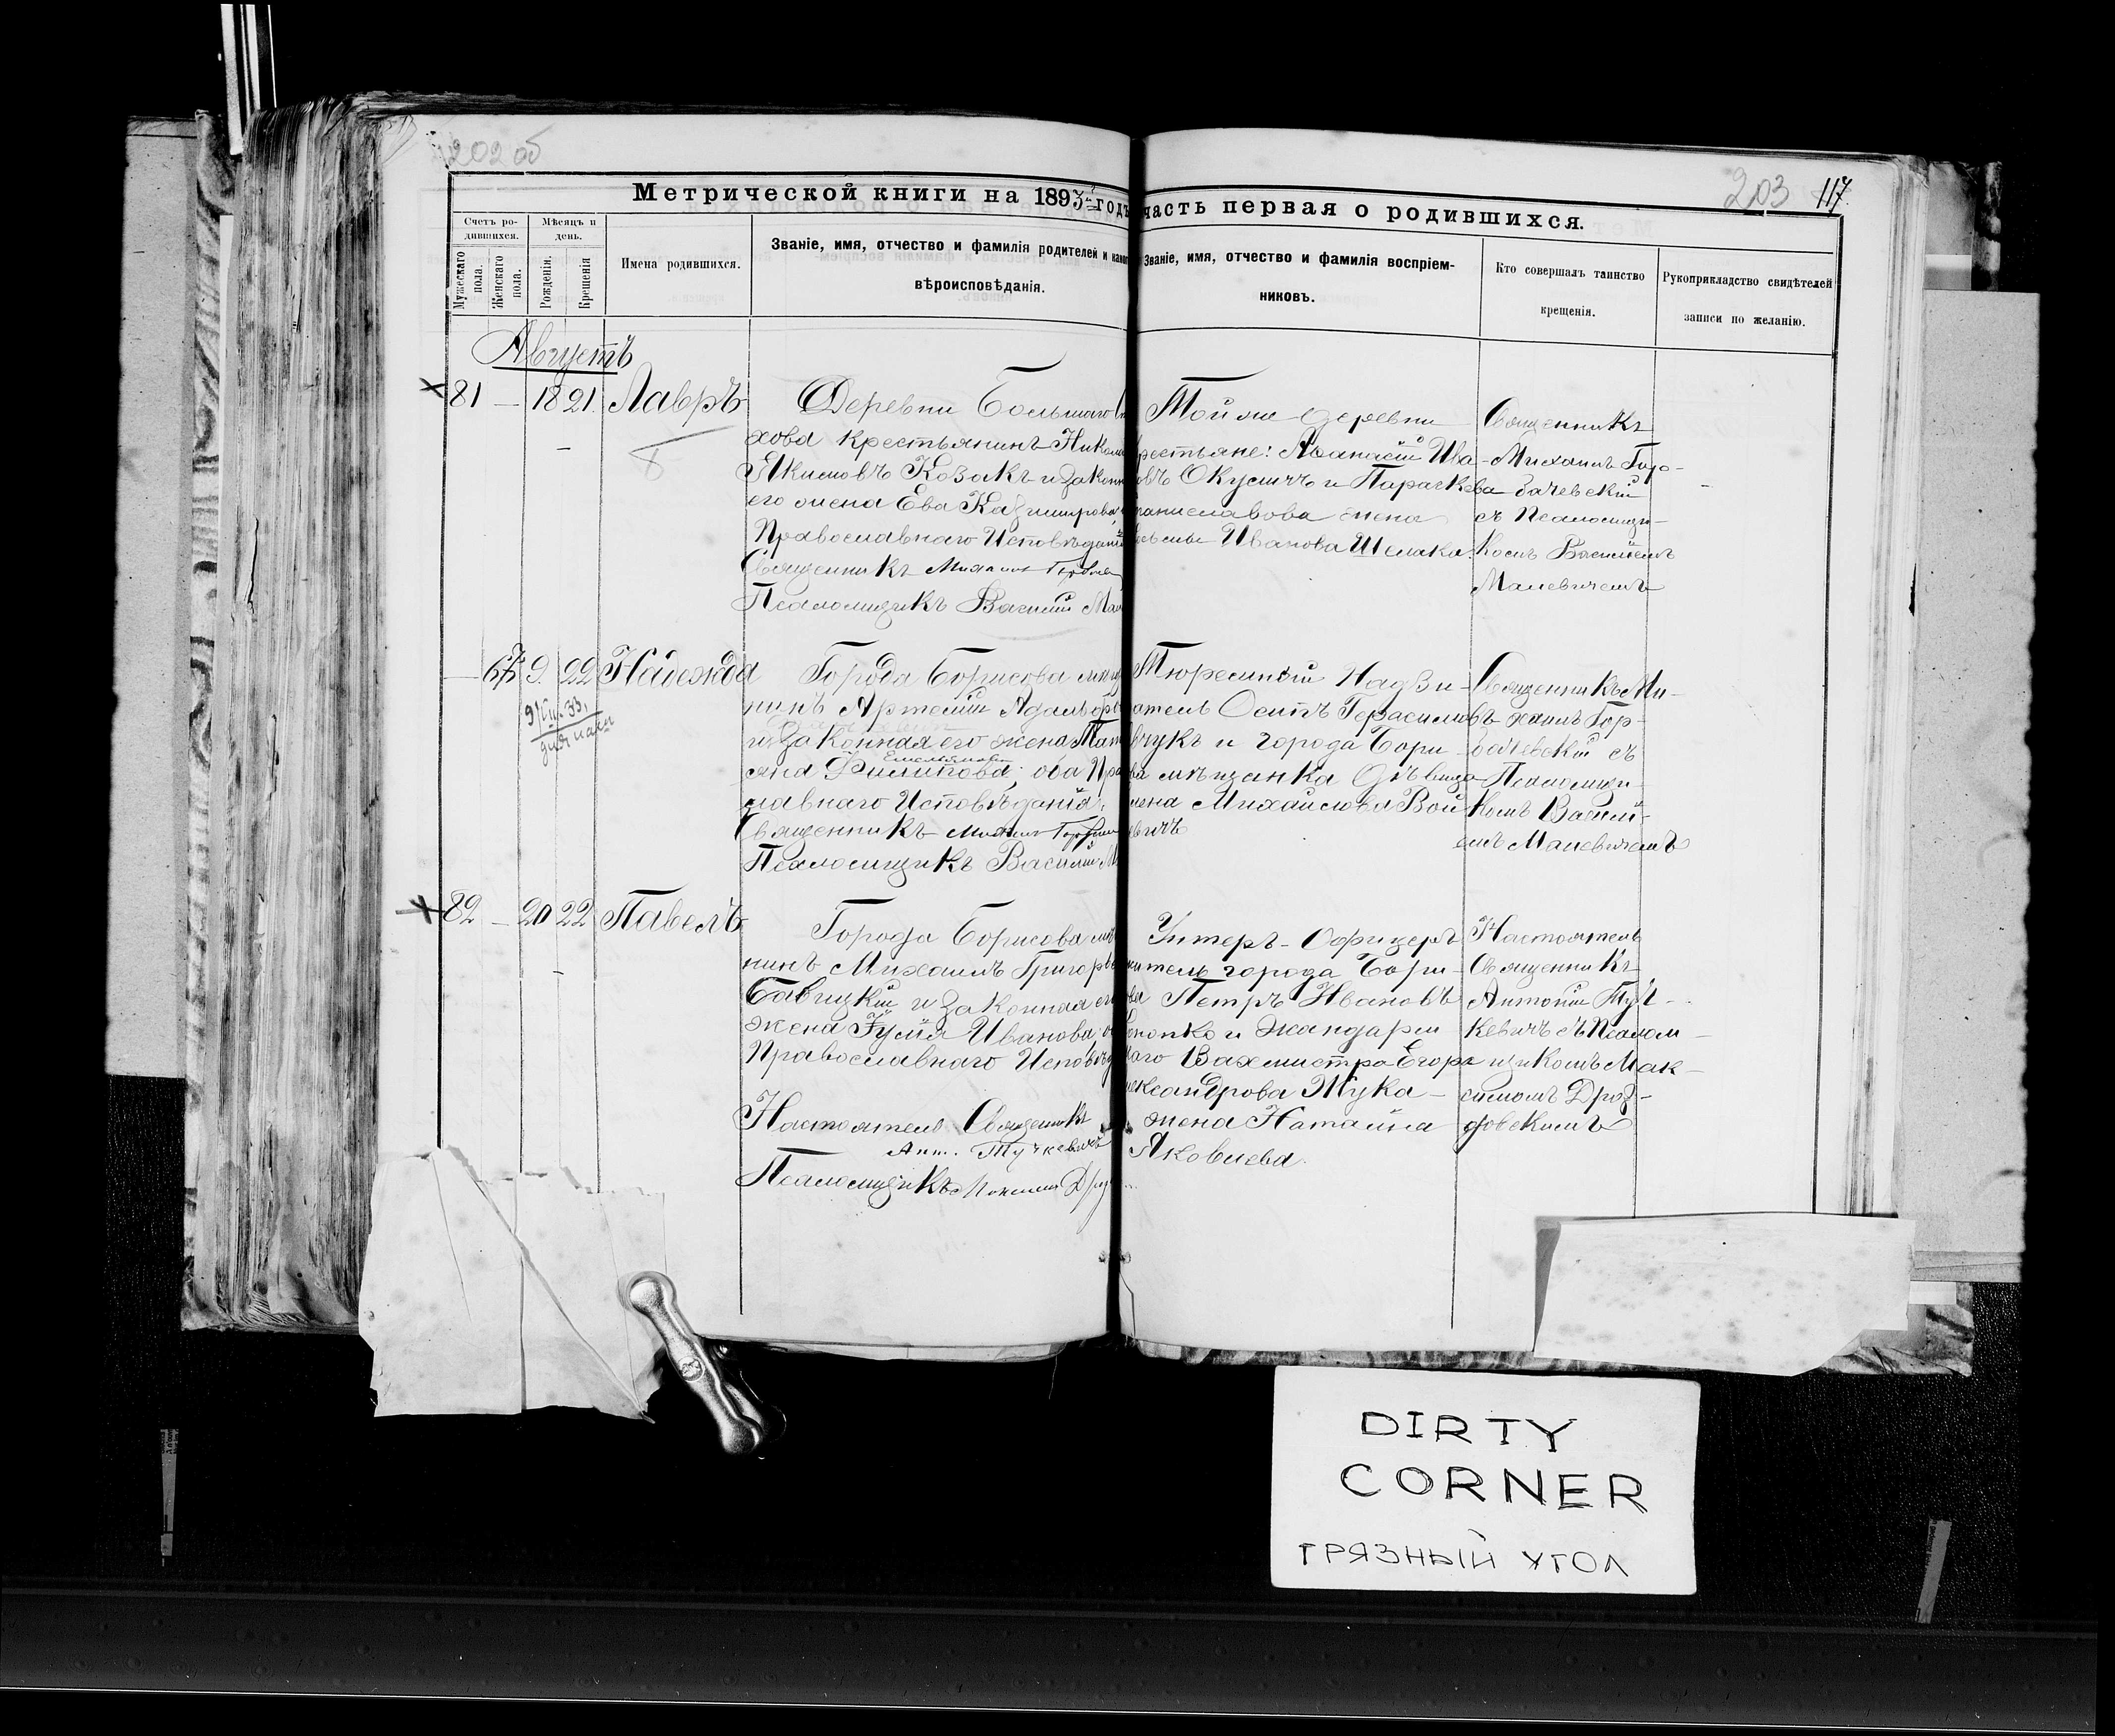 202 об
203 117
Метрической книги на 1893 годъ
часть первая о родившихся.
Счетъ ро-
дившихся.
Мѣсяцъ и
день.
Мужескаго
пола.
Женскаго
пола.
Рожденія.
Крещенія
Имена родившихся.
Званіе, имя, отчество и фамилія родителей и
вѣроисповѣданія.
Званіе, имя, отчество и фамилія воспріем-
никовъ.
Кто совершалъ таинство
крещенія.
Рукоприкладство свидѣтелей
записи по желанію.
Августъ
81 — 18 21 Лавръ
Деревни Большаго
хова крестьянинъ
Якимовъ Козакъ и
его жена Ева Казимирова
Православнаго
Священникъ Михаилъ
Псаломщикъ Василій
Той же деревни
Аѳанасій Ива-
Окуличъ и Параскева
жена
Иванова
Священникъ
Михаилъ Гор-
бачевскій
съ Псаломщи-
комъ Василіемъ
Малевичемъ
67 9 22 Надежда
Города Борисова
нинъ Артемій
и законная его жена
Емельянова
Филипова; оба
славнаго Исповѣданія.
Священникъ Михаилъ
Псаломщикъ Василій
Тюремный Надзи-
ратель Осипъ Герасимовъ
и города Бори-
мѣщанка дѣвица
Михайлова Вой-
Священникъ Ми-
хаилъ Гор-
бачевскій съ
Псаломщи-
комъ Василі-
емъ Малевичемъ
82 — 20 22 Павелъ
Города Борисова
нинъ Михаилъ
Савицкій и законная его
жена Юлія Иванова
Православнаго
Настоятель Священникъ
Ант. Тучкевичъ
Псаломщикъ
Унтеръ-Офицеръ
города Бори-
Петръ Ивановъ
и Жандарм
Вахмистра Егора
Жука
жена Наталія
Яковлева.
Настоятель
Священникъ
Антоній Туч-
кевичъ съ Псалом-
щикомъ Мак-
симомъ Дроз-
довскимъ
DIRTY
CORNER
ГРЯЗНЫЙ УГОЛ